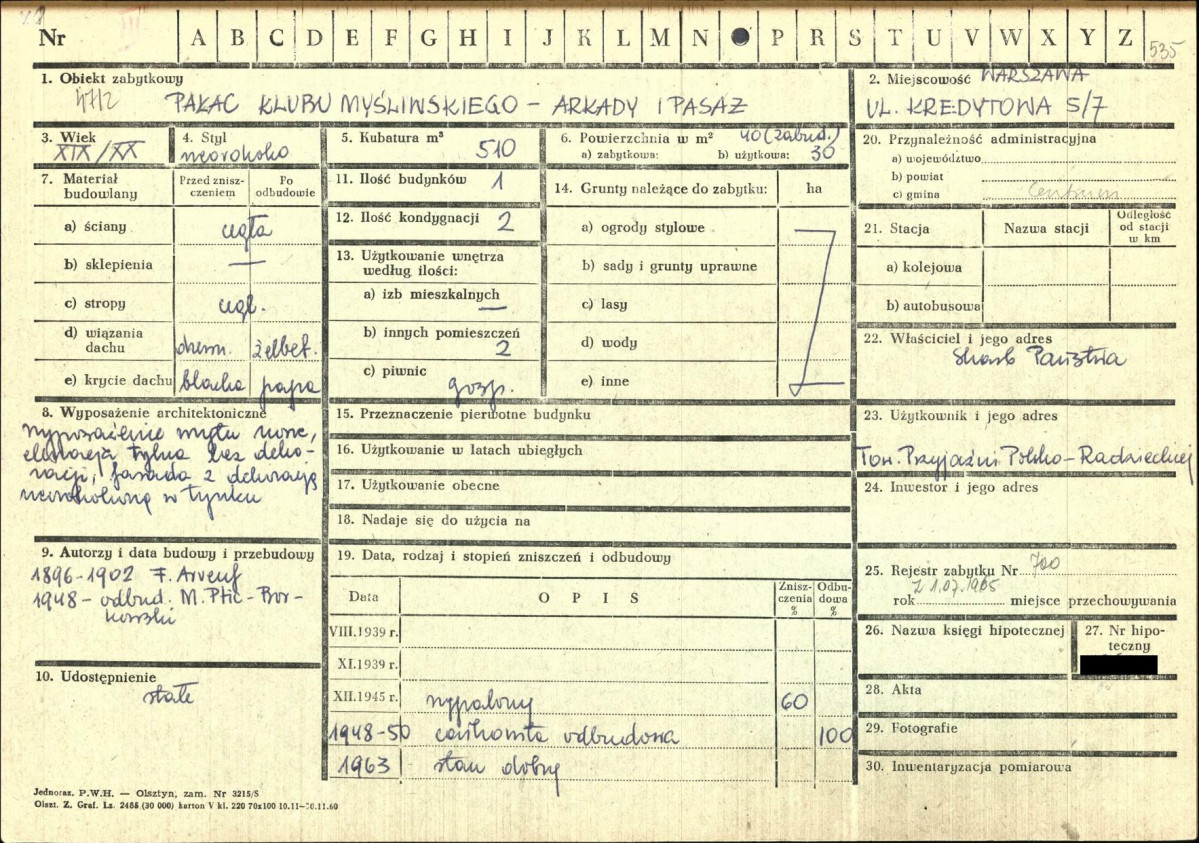 Nr A B C D E F G H I J K L M N P R S T U V W X Y Z 535
1. Obiekt zabytkowy
4712 PAŁAC KLUBU MYŚLIWSKIEGO – ARKADY I PASAŻ
2. Miejscowość WARSZAWA
UL. KREDYTOWA 5/7
3. Wiek
XIX/XX
4. Styl
neorokoko
5. Kubatura m³
510
6. Powierzchnia w m² 40 (zabud.)
a) zabytkowa: b) użytkowa: 30
7. Materiał budowlany
Przed zniszczeniem
Po odbudowie
a) ściany cegła
b) sklepienia —
c) stropy cegl.
d) wiązania dachu drewn. żelbet.
e) krycie dachu blacha papa
8. Wyposażenie architektoniczne
wyposażenie wnętrz nowe,
elewacja tylna bez deko-
racji, fasada z dekoracją
neorokokową w tynku
9. Autorzy i data budowy i przebudowy
1896-1902 F. Arveuf
1948 - odbud. M. Ptic-Bor-
kowski
10. Udostępnienie
stałe
11. Ilość budynków 1
12. Ilość kondygnacji 2
13. Użytkowanie wnętrza
według ilości:
a) izb mieszkalnych —
b) innych pomieszczeń
2
c) piwnic
gosp.
14. Grunty należące do zabytku: ha
a) ogrody stylowe
b) sady i grunty uprawne
c) lasy
d) wody
e) inne
15. Przeznaczenie pierwotne budynku
16. Użytkowanie w latach ubiegłych
17. Użytkowanie obecne
18. Nadaje się do użycia na
19. Data, rodzaj i stopień zniszczeń i odbudowy
Data O P I S Zniszczenia % Odbudowa %
VIII.1939 r.
XI.1939 r.
XII.1945 r. wypalony 60
1948-50 całkowita odbudowa 100
1963 stan dobry
20. Przynależność administracyjna
a) województwo
b) powiat
c) gmina Centrum
21. Stacja Nazwa stacji Odległość od stacji w km
a) kolejowa
b) autobusowa
22. Właściciel i jego adres
Skarb Państwa
23. Użytkownik i jego adres
Tow. Przyjaźni Polsko-Radzieckiej
24. Inwestor i jego adres
25. Rejestr zabytku Nr 700
z 1.07.1965
rok miejsce przechowywania
26. Nazwa księgi hipotecznej
27. Nr hipoteczny
28. Akta
29. Fotografie
30. Inwentaryzacja pomiarowa
Jednoraz. P.W.H. — Olsztyn, zam. Nr 3215/S
Olszt. Z. Graf. Ls. 2485 (30 000) karton V kl. 220 70x100 10.11—30.11.60